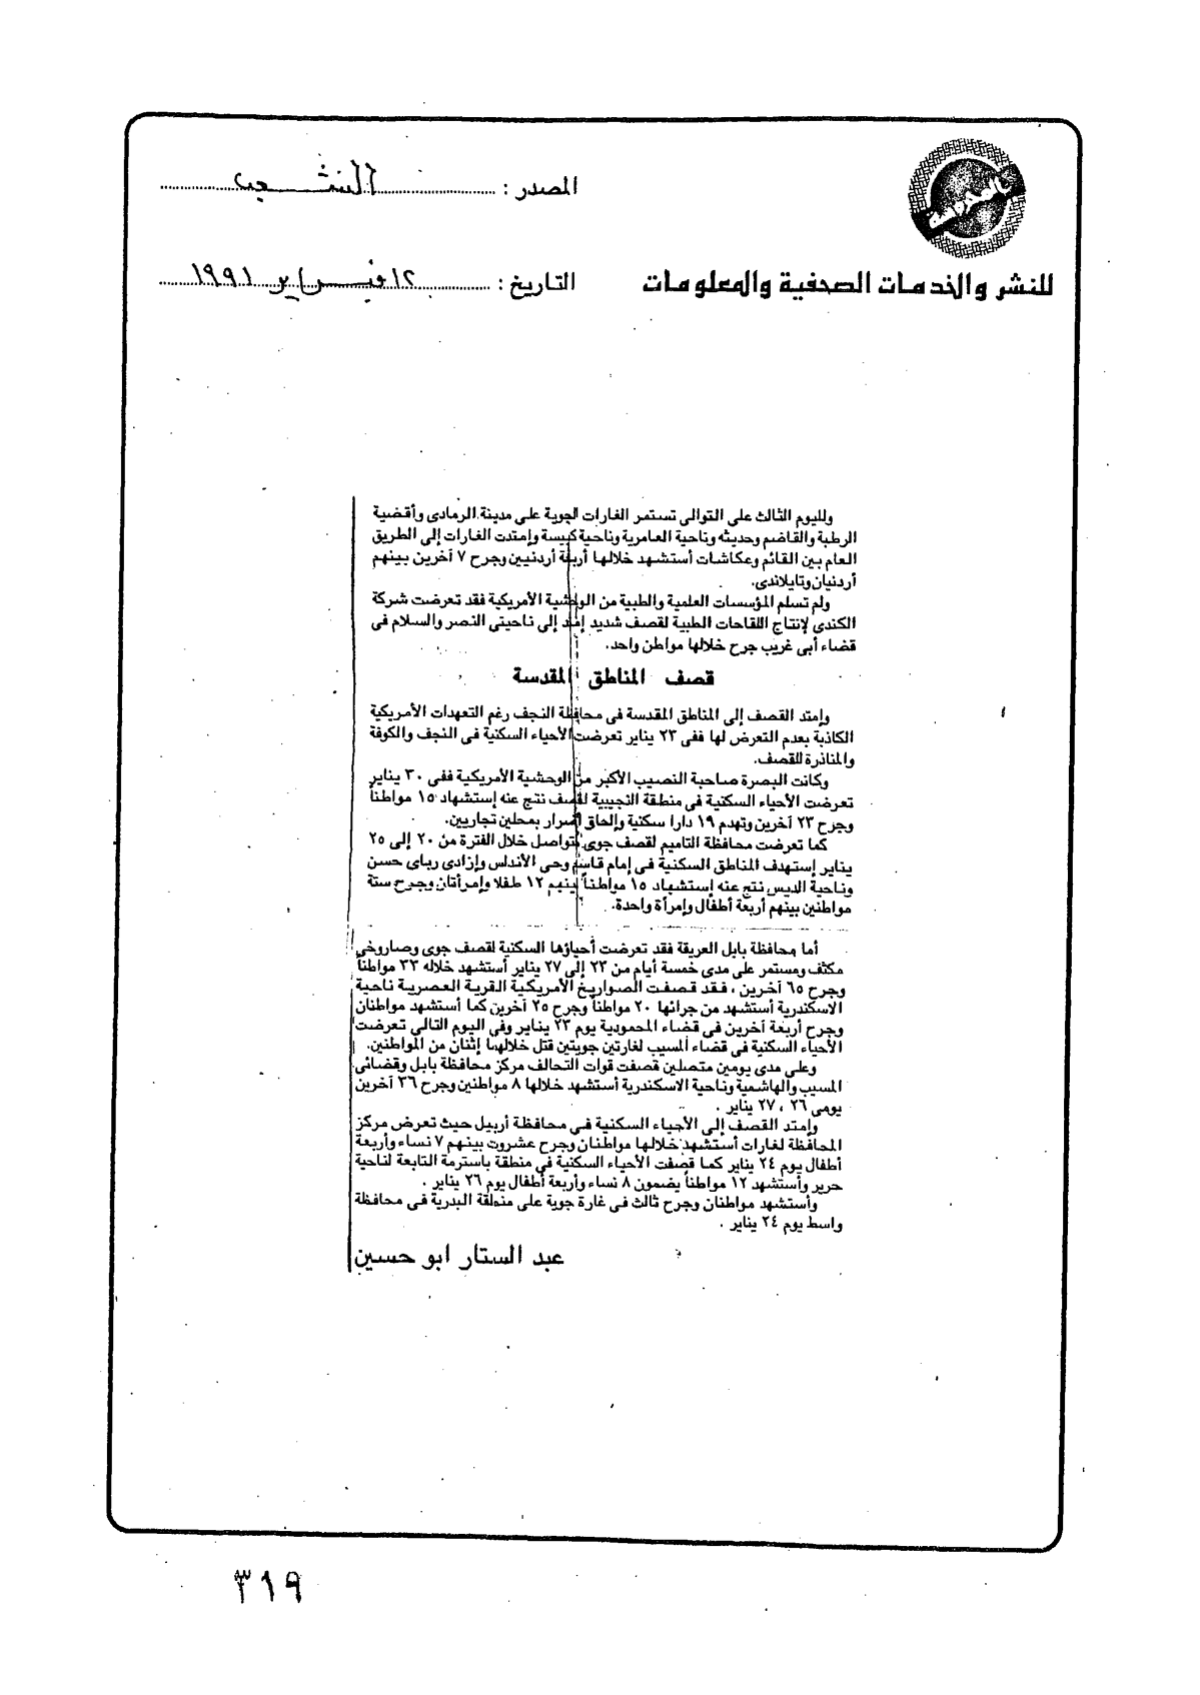 المصدر : الشعب
التاريخ : ١٢ فبراير ١٩٩١
للنشر والخدمات الصحفية والمعلومات
ولليوم الثالث على التوالى تستمر الغارات الجوية على مدينة الرمادى وأقضية
الرطبة والقاضم وحديثه وناحية العامرية وناحية كبيسة وإمتدت الغارات إلى الطريق
العام بين القائم وعكاشات أستشهد خلالها أربعة أردنيين وجرح ٧ آخرين بينهم
أردنيان وتايلاندى.
ولم تسلم المؤسسات العلمية والطبية من الوحشية الأمريكية فقد تعرضت شركة
الكندى لإنتاج اللقاحات الطبية لقصف شديد إمتد إلى ناحيتى النصر والسلام فى
قضاء أبى غريب جرح خلالها مواطن واحد.
قصف المناطق المقدسة
وإمتد القصف إلى المناطق المقدسة فى محافظة النجف رغم التعهدات الأمريكية
الكاذبة بعدم التعرض لها ففى ٢٣ يناير تعرضت الأحياء السكنية فى النجف والكوفة
والمناذرة للقصف.
وكانت البصرة صاحبة النصيب الأكبر من الوحشية الأمريكية ففى ٣٠ يناير
تعرضت الأحياء السكنية فى منطقة النجيبية لقصف نتج عنه إستشهاد ١٥ مواطناً
وجرح ٢٣ آخرين وتهدم ١٩ دارا سكنية وإلحاق أضرار بمحلين تجاريين.
كما تعرضت محافظة التاميم لقصف جوى متواصل خلال الفترة من ٢٠ إلى ٢٥
يناير إستهدف المناطق السكنية فى إمام قاسم وحى الأندلس وإزادى رباى حسن
وناحية الدبس نتج عنه إستشهاد ١٥ مواطناً بينهم ١٢ طفلا وإمرأتان وجرح ستة
مواطنين بينهم أربعة أطفال وإمرأة واحدة.
أما محافظة بابل العريقة فقد تعرضت أحياؤها السكنية لقصف جوى وصاروخى
مكثف ومستمر على مدى خمسة أيام من ٢٣ إلى ٢٧ يناير أستشهد خلاله ٣٣ مواطناً
وجرح ٦٥ آخرين ، فقد قصفت الصواريخ الأمريكية القرية العصرية ناحية
الاسكندرية أستشهد من جرائها ٢٠ مواطناً وجرح ٢٥ آخرين كما أستشهد مواطنان
وجرح أربعة آخرين فى قضاء المحمودية يوم ٢٣ يناير وفى اليوم التالى تعرضت
الأحياء السكنية فى قضاء المسيب لغارتين جويتين قتل خلالهما إثنان من المواطنين.
وعلى مدى يومين متصلين قصفت قوات التحالف مركز محافظة بابل وقضائى
المسيب والهاشمية وناحية الاسكندرية أستشهد خلالها ٨ مواطنين وجرح ٣٦ آخرين
يومى ٢٦ ، ٢٧ يناير .
وإمتد القصف إلى الأحياء السكنية فى محافظة أربيل حيث تعرض مركز
المحافظة لغارات أستشهد خلالها مواطنان وجرح عشروت بينهم ٧ نساء وأربعة
أطفال يوم ٢٤ يناير كما قصفت الأحياء السكنية فى منطقة باسترمة التابعة لناحية
حرير وأستشهد ١٢ مواطناً يضمون ٨ نساء وأربعة أطفال يوم ٢٦ يناير .
وأستشهد مواطنان وجرح ثالث فى غارة جوية على منطقة البدرية فى محافظة
واسط يوم ٢٤ يناير .
عبد الستار ابو حسين
٣١٩